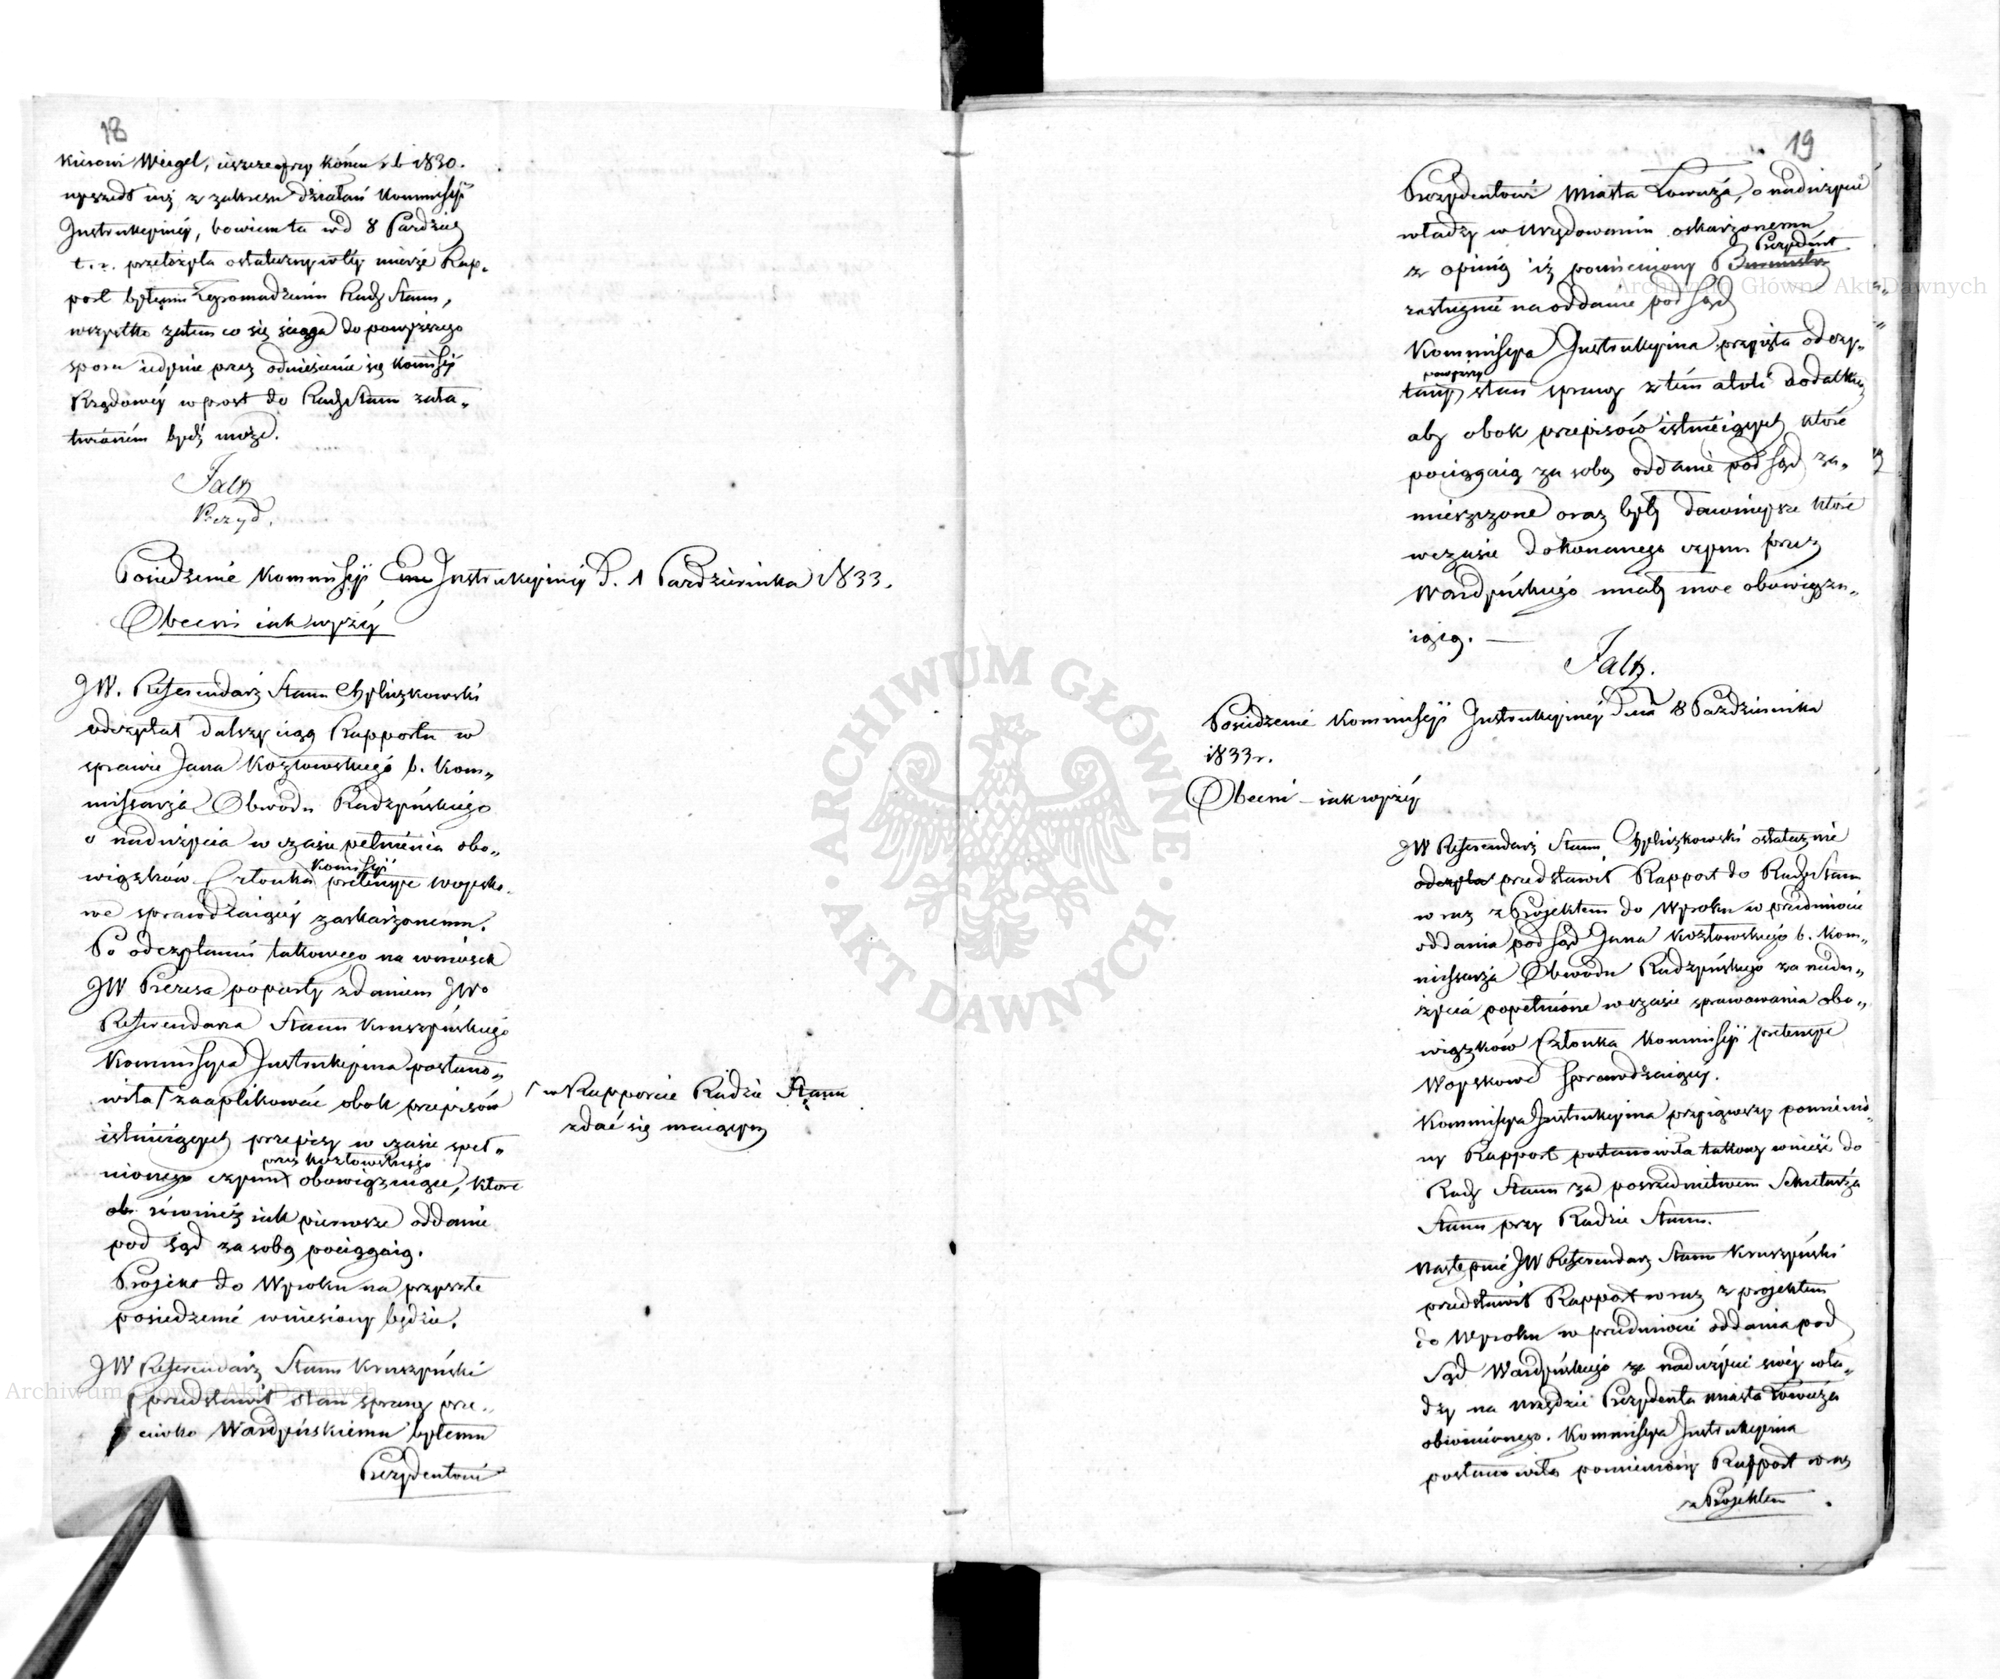 18
kierowi Weigel, ieszcze przy końcu r. b 1830.
wyszedł iuż z zakresu działań Kommissyi
Instrukcyinéy, bowiem ta w d 8 Paździer
t. r. przełożyła ostateczny w téy mierze Rap„
port byłemu Zgromadzeniu Rady Stanu,
wszystko zatem co się ściąga do powyższego
sporu iedynie przez odniesienie się Komissyi
Rządowéy wprost do Rady Stanu zała„
twioném być może.
Falz
Prezyd.
Posiedzenie Kommissyi Instrukcyinéy D. 1 Października 1833.
Obecni iak wyżéy
JW. Referendarz Stanu Chyliczkowski
odczytał dalszy ciąg Rapportu w
sprawie Jana Kozłowskiego b. Kom„
missarza Obwodu Radzyńskiego
o nadużycia w czasie pełnienia obo„
wiązków Członka Komissyi pretensye woysko„
we sprawdzaiącéy zaskarżonemu.
Po odczytaniu takowego na wniosek
JW Prezesa poparty zdaniem JWo
Referendarza Stanu Kruszyńskiego
Kommissya Instrukcyina postano„
wiła / zaaplikować obok przepisów
/ w Rapporcie Radzie Stanu
zdać się maiącym
istnieiących przepisy w czasie speł„
nionego czynu przez Kozłowskiego obowiązuiące, które
ob. również iak pierwsze oddanie
pod Sąd za sobą pociągaią.
Projekt do Wyroku na przyszłe
posiedzenie wniesiony będzie.
JW Referendarz Stanu Kruszyński
przedstawił stan sprawy prze„
ciwko Wardyńskiemu byłemu
Prezydentowi
19
Prezydentowi Miasta Łowicza, o nadużycie
władzy w urzędowaniu oskarżonemu
z opinią iż pomieniony Burmistrz Prezydent
zasługuie na oddanie pod Sąd
Kommissya Instrukcyina przyięła odczy„
tany powyższy stan sprawy z tém atoli dodatkiem
aby obok przepisów istnieiących które
pociągaią za sobą oddanie pod Sąd za„
mieszczone oraz były dawnieysze które
w czasie dokonanego czynu przez
Wardyńskiego miały moc obowiązu„
iącą.
Falz.
Posiedzenie Kommissyi Instrukcyinéy Dnia 8 Października
1833 r.
Obecni – iak wyżéy
JW Referendarz Stanu Chyliczkowski ostatecznie
odczyta przedstawił Rapport do Rady Stanu
wraz z Projektem do Wyroku w przedmiocie
oddania pod Sąd Jana Kozłowskiego b. Kom„
missarza Obwodu Radzyńskiego za nadu„
życia popełnione w czasie sprawowania obo„
wiązków Członka Kommissyi pretensye
Woyskowe Sprawdzaiącéy.
Kommissya Instrukcyina przyiąwszy pomienio„
ny Rapport postanowiła takowy wnieść do
Rady Stanu za pośrednictwem Sekretarza
Stanu przy Radzie Stanu.
Następnie JW Referendarz Stanu Kruszyński
przedstawił Rapport wraz z projektem
do Wyroku w przedmiocie oddania pod
Sąd Wardyńskiego za nadużycie swéy wła„
dzy na urzędzie Prezydenta miasta Łowicza
obwinionego. Kommissya Instrukcyina
postanowiła pomieniony Rapport wraz
z Projektem
ARCHIWUM GŁÓWNE AKT DAWNYCH
Archiwum Główne Akt Dawnych
Archiwum Główne Akt Dawnych